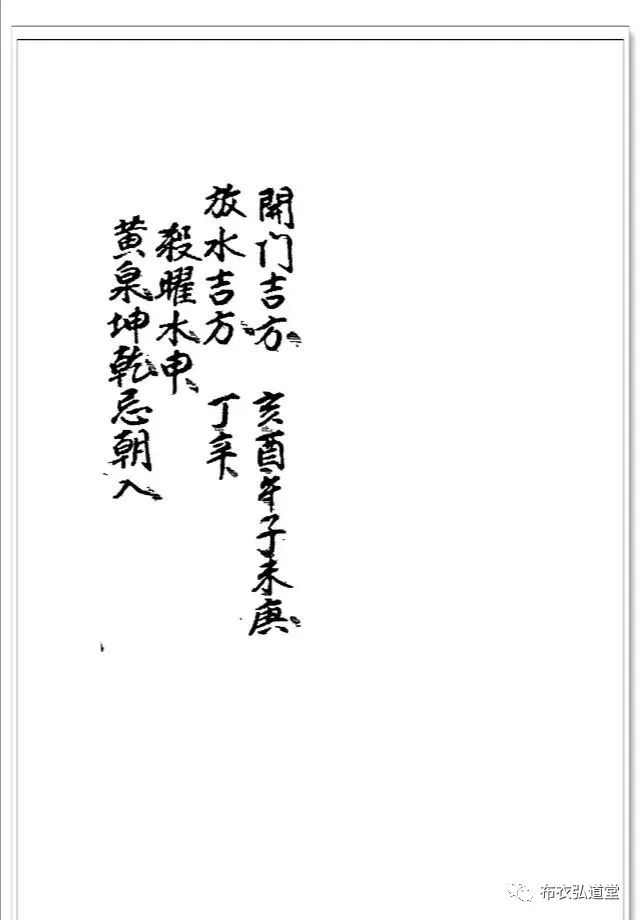 開门吉方 亥酉午子未庚
放水吉方 丁辛
殺曜水申
黄泉坤乾忌朝入
布衣弘道堂